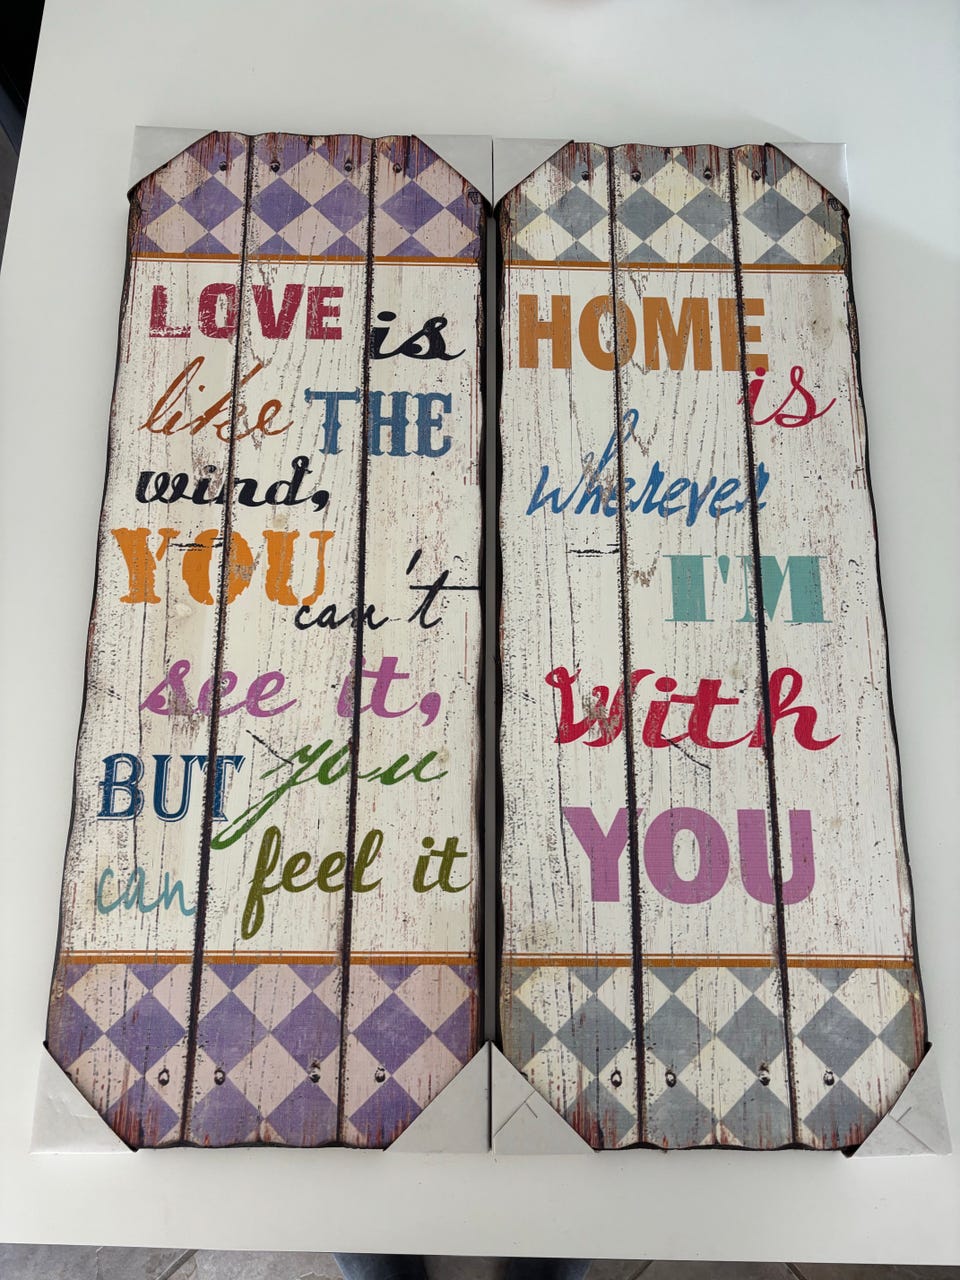 LOVE is
like THE
wind,
YOU
can't
see it,
BUT you
can feel it
HOME
is
wherever
I'M
With
YOU